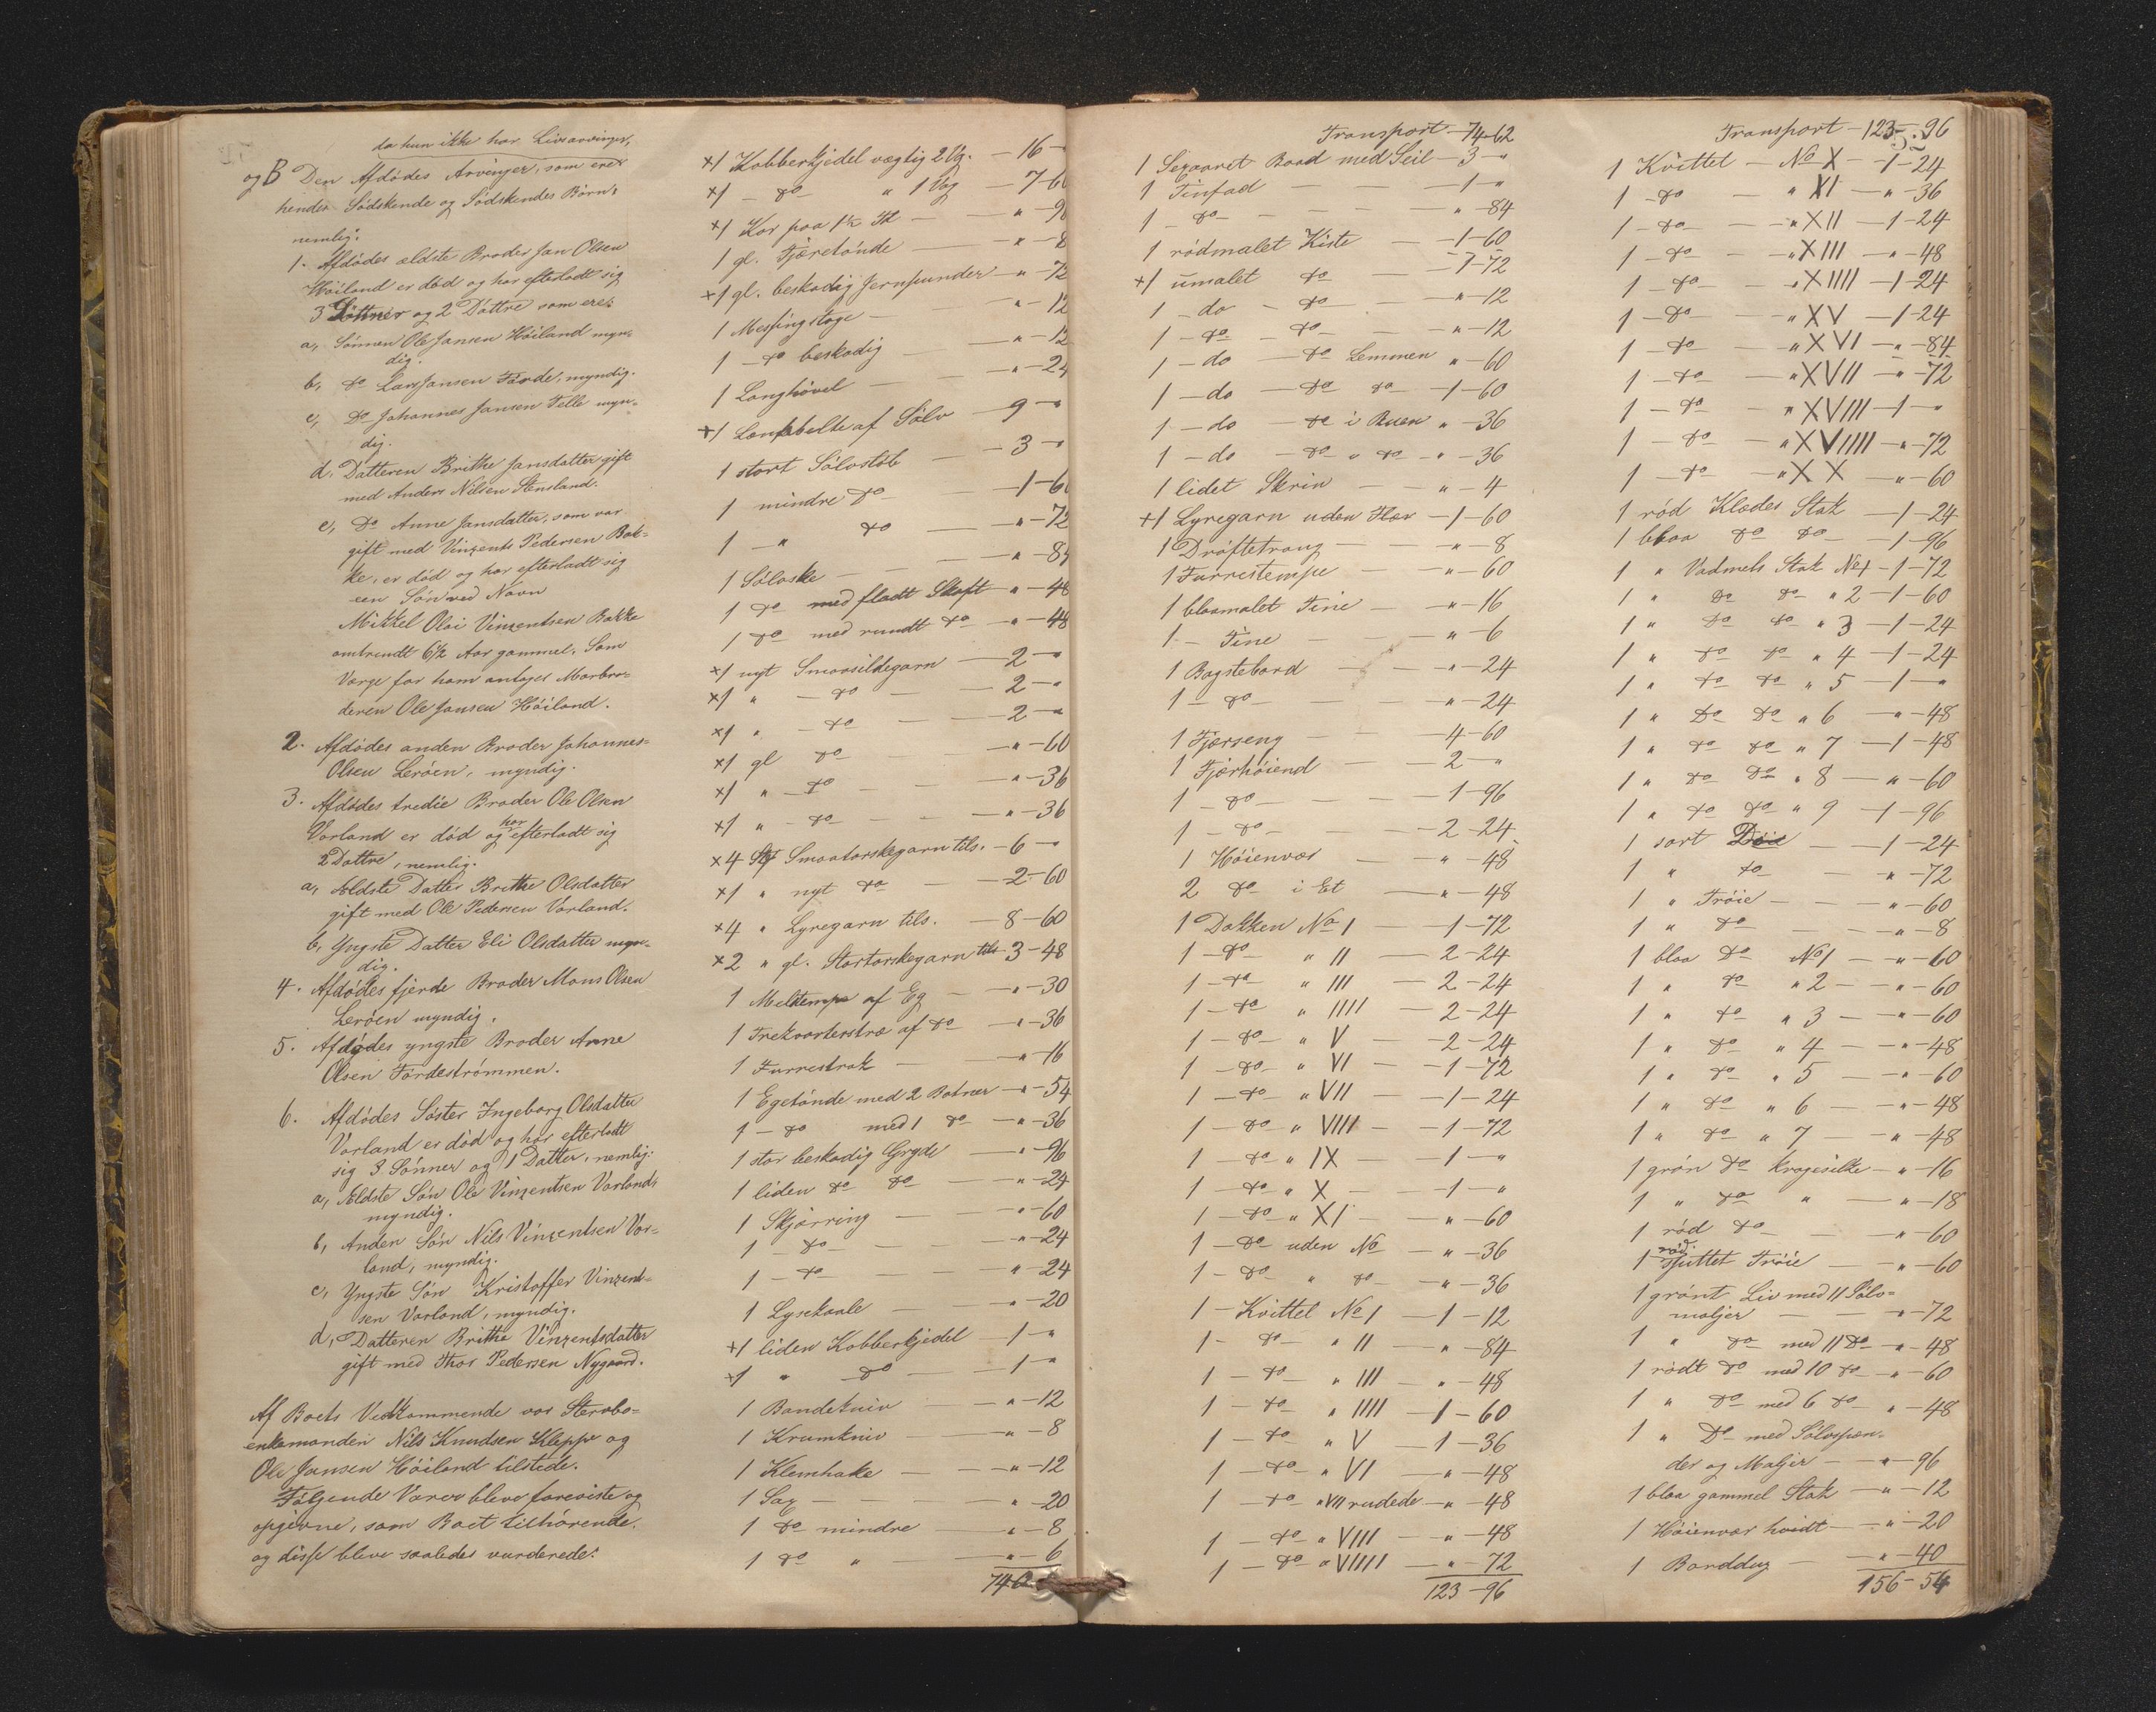 da hun ikke har Livsarvinger,
og B Den Afdödes Arvinger, som ere
hendes Södskende og Södskendes Börn:
nemlig:
1. Afdödes ældste Broder Jan Olsen
Höiland er död og har efterladt sig
3 Sönner og 2 Döttre som ere:
a, Sönnen Ole Jansen Höiland myn-
dig.
b, Do Lars Jansen Förde, myndig.
c, Do Johannes Jansen Telle myn-
dig.
d. Datteren Brithe Jansdatter gift
med Anders Nilsen Stensland.
e, Do Anne Jansdatter, som var
gift med Vinzents Pedersen Bak-
ke, er död og har efterladt sig
een Sön ved Navn
Mikkel Olai Vinzentsen Bakke
ombrendt 6½ Aar gammel. Som
Værge for ham antages Morbro-
deren Ole Jansen Höiland.
2. Afdödes anden Broder Johannes
Olsen Leröen, myndig.
3. Afdödes tredie Broder Ole Olsen
Vorland er död og har efterladt sig
2 Döttre, nemlig.
a, Ældste Datter Brithe Olsdatter
gift med Ole Pedersen Vorland.
b, Yngste Datter Eli Olsdatter myn-
dig.
4. Afdödes fjerde Broder Mons Olsen
Leröen myndig.
5. Afdödes yngste Broder Arne
Olsen Fördeströmmen.
6. Afdödes Söster Ingeborg Olsdatter
Vorland er död og har efterladt
sig 3 Sönner og 1 Datter, nemlig:
a, Ældste Sön Ole Vinzentsen Vorland,
myndig.
b, Anden Sön Nils Vinzentsen Vor-
land, myndig.
c, Yngste Sön Kristoffer Vinzent-
sen Vorland, myndig.
d, Datteren Brithe Vinzentsdatter
gift med Thor Pedersen Nygaard.
Af Boets Vedkommende var Stervbo-
enkemanden Nils Knudsen Kleppe og
Ole Jansen Höiland tilstede.
Fölgende Varer bleve foreviste og
opgivne, som Boet tilhörende,
og disse bleve saaledes vurderede:
×1 Kobberkjedel vægtig 2 Vg. — 16 — "
×1 — Do — " 1 Vog — 7-60
×1 Kar paa 1½ — " - 9
1 gl. Tjæretönde — " - 8
×1 gl. beskadig Jernpunder — " - 72
1 Messingstage — " - 12
1 — Do beskadig — " - 12
1 Langhövel — " - 24
×1 Lænkebelte af Sölv — 9 — "
1 stort Sölvstöb — 3 — "
1 mindre Do — 1-60
1 — " Do — " - 72
1 Sölvske — " - 84
1 Do med fladt Skaft — " - 48
1 Do med rundt Do — " - 48
×1 nyt Smaasildegarn — 2 — "
×1 " — Do — 2 — "
×1 " — Do — 2 — "
×1 gl Do — " - 60
×1 " — Do — " - 36
×1 " — Do — " - 36
×4 Stk Smaatorskegarn tils. — 6 — "
×1 " nyt Do — 2-60
×4 " Lyregarn tils. — 8-60
×2 " gl. Stortorskegarn tils 3-48
1 Meltempe af Eg — " - 30
1 Trekvarterstræ af Do — " - 36
1 Furrestrak — " - 16
1 Egetönde med 2 Botner — " - 54
1 — Do med 1 Do — " - 36
1 stor beskadig Gryde — " - 96
1 liden Do Do — " - 24
1 Skjærring — " - 60
1 — Do — " - 24
1 — Do — " - 24
1 Lysekaale — " - 20
×1 liden Kobberkjedel — 1 — "
×1 " Do — 1 — "
1 Bandekniv — " - 12
1 Krumkniv — " - 8
1 Klemhake — " - 12
1 Sag — " - 20
1 Do mindre — " - 8
1 Do " — " - 6
Transport — 74-62
1 Sexaaret Baad med Seil — 3 — "
1 Tinfad — 1 — "
1 — Do — " - 84
1 rödmalet Kiste — 1-60
×1 umalet Do — 1-72
1 — do — Do — " - 12
1 — Do — Do — " - 12
1 — do — Do Lemmen " - 60
1 — do — Do Do — 1-60
1 — do — Do i Buen " - 36
1 — do — Do " Do — " - 36
1 lidet Skrin — " - 4
×1 Lyregarn uden Flær — 1-60
1 Dröftetroug — " - 8
1 Furrestempe — " - 60
1 blaamalet Tine — " - 16
1 — Tine — " - 6
1 Bagstebord — " - 24
1 — Do — " - 24
1 Fjærseng — 4-60
1 Fjærhöiend — 2 — "
1 — Do — 1-96
1 — Do — 2-24
1 Höienvær — " - 48
2 Do i Et — " - 48
1 Dækken No 1 — 1-72
1 — Do " II — 2-24
1 — Do " III — 2-24
1 — Do " IIII — 2-24
1 — Do " V — 2-24
1 — Do " VI — 1-72
1 — Do " VII — 1-24
1 — Do " VIII — 1-72
1 — Do " IX — 1 — "
1 — Do " X — 1 — "
1 — Do " XI — " - 60
1 — Do uden No — " - 36
1 — Do " Do — " - 36
1 — Kvittel No 1 — 1-12
1 — Do — " II — " - 84
1 — Do " III — " - 48
1 — Do " IIII — 1-60
1 — Do " V — 1-36
1 — Do " VI — " - 48
1 — Do " VII rudede — " - 48
1 — Do " VIII — " - 48
1 — Do " VIIII — " - 72
123-96
Transport — 123-96
1 Kvittel — No X — 1-24
1 — Do — " XI — " - 36
1 — Do — " XII — 1-24
1 — Do — " XIII — " - 48
1 — Do — " XIIII — 1-24
1 — Do — " XV — 1-24
1 — Do — " XVI — " - 84
1 — Do — " XVII — " - 72
1 — Do — " XVIII — 1 — "
1 — Do — " XVIIII — " - 72
1 — Do — " XX — " - 60
1 röd Klædes Stak — 1-24
1 blaa Do Do — 1-96
1 " Vadmels Stak No 1 — 1-72
1 " Do Do " 2 — 1-60
1 " Do Do " 3 — 1-24
1 " Do Do " 4 — 1-24
1 " Do Do " 5 — 1 — "
1 " Do Do " 6 — " - 48
1 " Do Do " 7 — 1-48
1 " Do Do " 8 — " - 60
1 " Do Do " 9 — 1-96
1 sort — 1-24
1 " Do — " - 72
1 " Tröie — " - 60
1 " Do — " - 8
1 blaa Do No 1 — " - 60
1 " Do " 2 — " - 60
1 " Do " 3 — " - 60
1 " Do " 4 — " - 48
1 " Do " 5 — " - 60
1 " Do " 6 — " - 48
1 " Do " 7 — " - 48
1 grön Do — " - 16
1 " Do " — " - 18
1 röd Do — " - 60
1 röd Tröie — " - 60
1 grönt Liv med 11 Sölv-
maljer — " - 72
1 " Do med 11 Do — " - 48
1 rödt Do med 10 Do — " - 60
1 " Do med 6 Do " - 48
1 " Do med Sölvspæn-
der og Maljer — " - 96
1 blaa gammel Stak — " - 12
1 Höienvær hvidt — " - 20
1 Borddug — " - 40
156-54